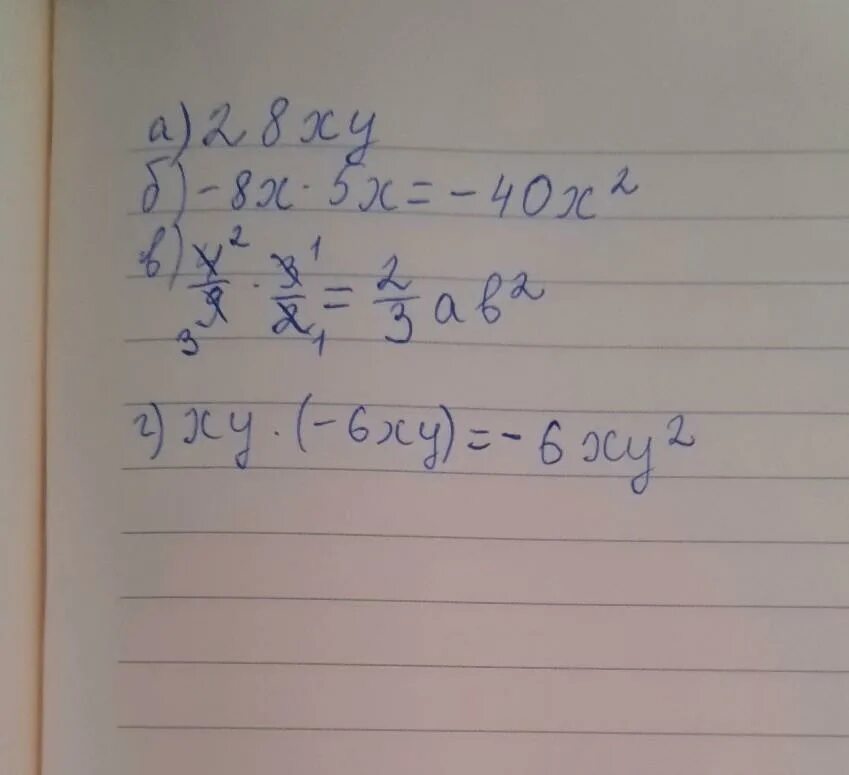 а) 28xy
б) -8x · 5x = -40x²
в) 4²/9₃ · 3¹/2₁ = 2/3 ab²
г) xy · (-6xy) = -6xy²